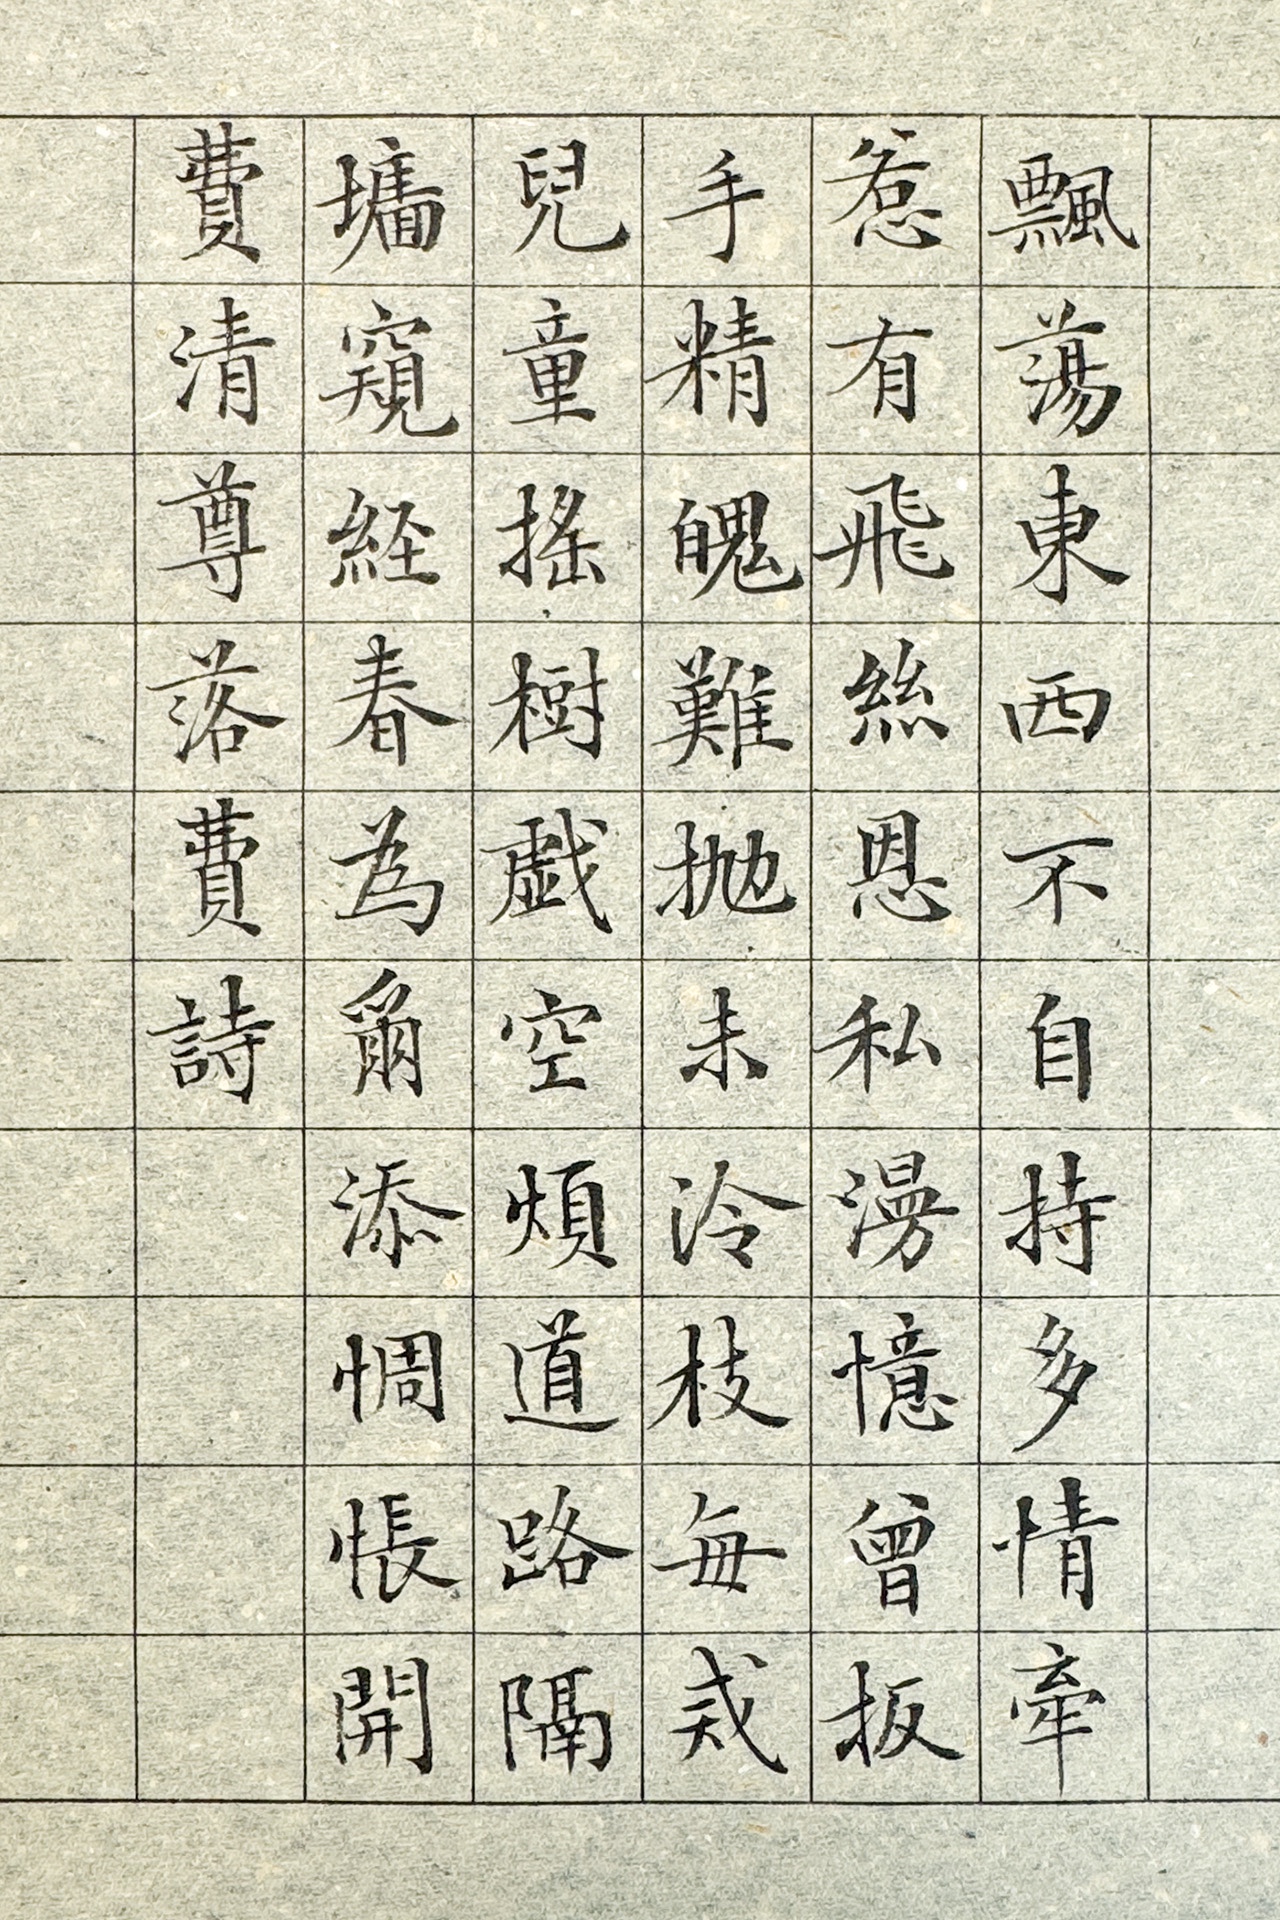 飄蕩東西不自持多情牽
惹有飛絲恩私漫憶曾扳
手精魄難拋未冷枝每戒
兒童搖樹戲空煩道路隔
墻窺経春為爾添惆悵開
費清尊落費詩